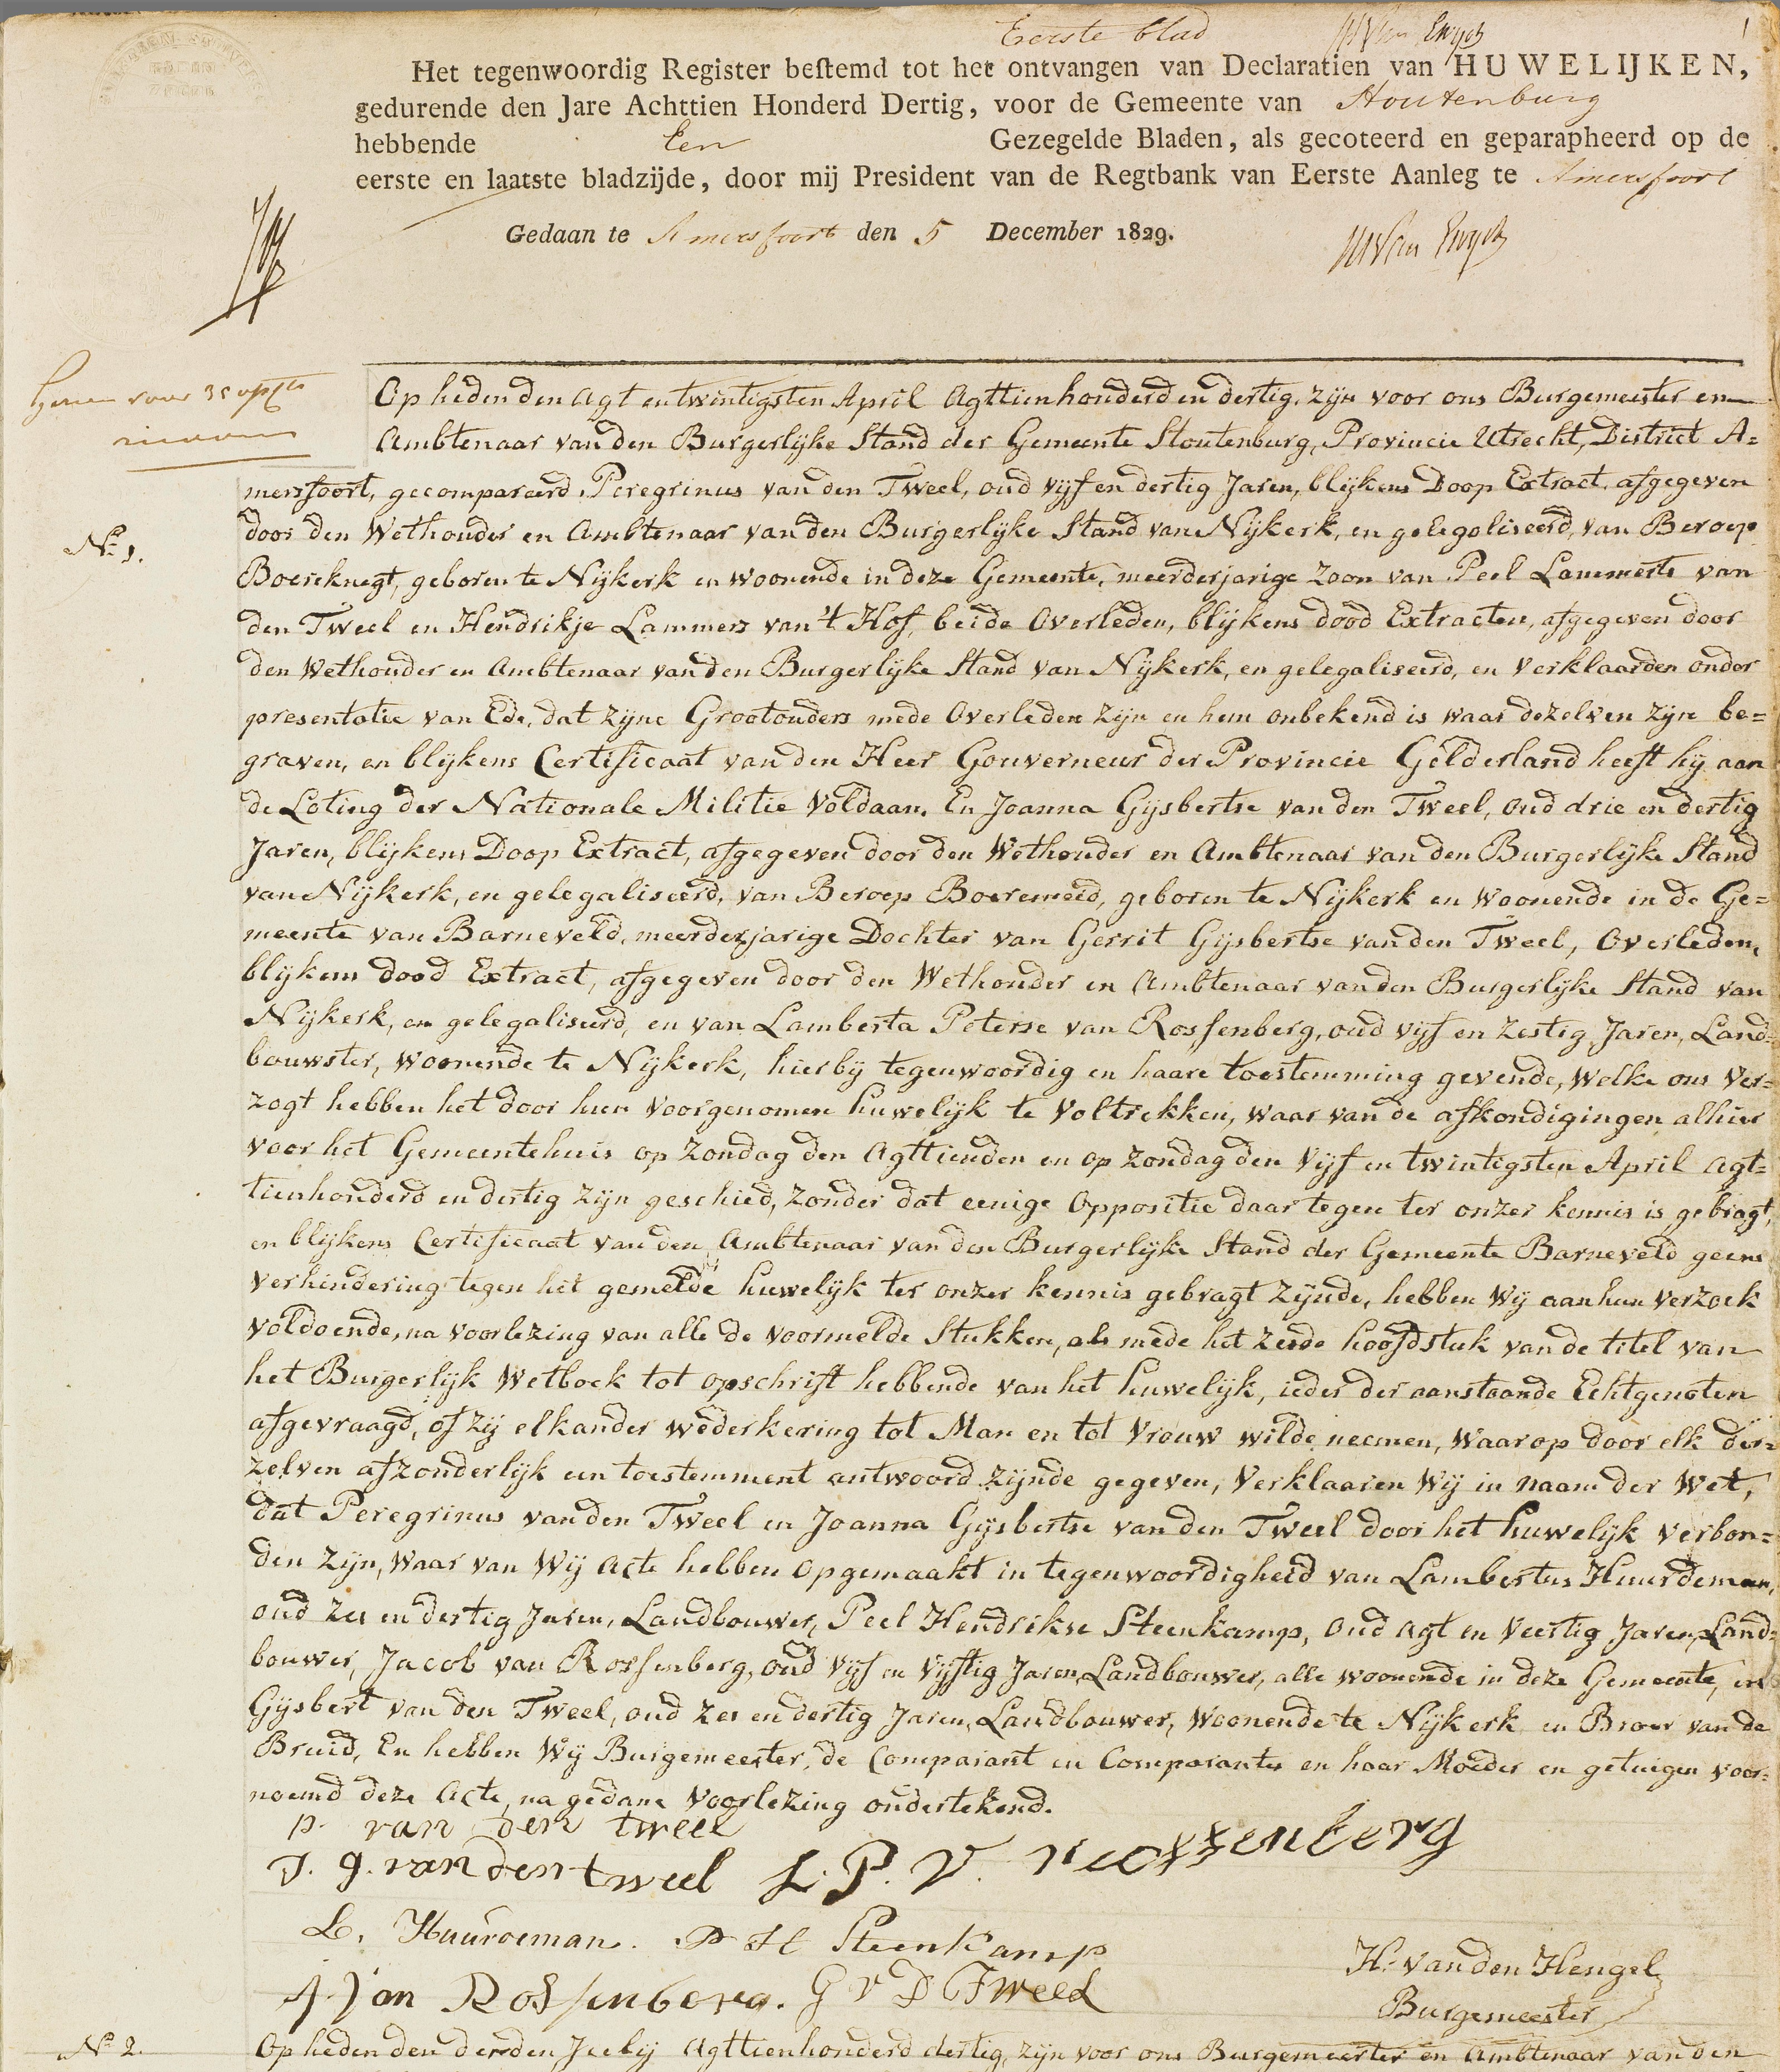 Eerste blad
Het tegenwoordig Register bestemd tot het ontvangen van Declaratien van HUWELIJKEN,
gedurende den Jare Achttien Honderd Dertig, voor de Gemeente van Stoutenburg
hebbende Een Gezegelde Bladen, als gecoteerd en geparapheerd op de
eerste en laatste bladzijde, door mij President van de Regtbank van Eerste Aanleg te Amersfoort
Gedaan te Amersfoort den 5 December 1829.
Op heden den Agt en twintigsten April Agttienhonderd en dertig, zijn voor ons Burgemeester en
Ambtenaar van den Burgerlijke Stand der Gemeente Stoutenburg, Provincie Utrecht, District A=
mersfoort, gecompareerd Peregrinus van den Tweel, oud vijf en dertig Jaren, blijkens Doop Extract, afgegeven
No 1.
door den Wethouder en Ambtenaar van den Burgerlijke Stand van Nijkerk, en gelegaliseerd, van Beroep
Boereknegt, geboren te Nijkerk en woonende in deze Gemeente, meerderjarige Zoon van Peel Lammerts van
den Tweel en Hendrikje Lammers van 't Hof, beide Overleden, blijkens dood Extracten, afgegeven door
den Wethouder en Ambtenaar van den Burgerlijke Stand van Nijkerk, en gelegaliseerd, en Verklaarden onder
presentatie van Ede, dat zijne Grootouders mede Overleden zijn en hem onbekend is waar dezelven zijn be=
graven, en blijkens Certificaat van den Heer Gouverneur der Provincie Gelderland heeft hij aan
de Loting der Nationale Militie Voldaan. En Joanna Gijsbertse van den Tweel, oud drie en dertig
Jaren, blijkens Doop Extract, afgegeven door den Wethouder en Ambtenaar van den Burgerlijke Stand
van Nijkerk, en gelegaliseerd, van Beroep Boeremeid, geboren te Nijkerk en woonende in de Ge=
meente van Barneveld, meerderjarige Dochter van Gerrit Gijsbertse van den Tweel, Overleden,
blijkens dood Extract, afgegeven door den Wethouder en Ambtenaar van den Burgerlijke Stand van
Nijkerk, en gelegaliseerd, en van Lamberta Peterse van Rossenberg, oud vijf en Zestig Jaren, Land=
bouwster, woonende te Nijkerk, hierbij tegenwoordig en haare toestemming gevende, Welke ons Ver=
zogt hebben het door hun Voorgenomen huwelijk te Voltrekken, waar van de afkondigingen alhier
voor het Gemeentehuis op Zondag den Agttienden en op Zondag den Vijf en twintigsten April Agt=
tienhonderd en dertig zijn geschied, zonder dat eenige Oppositie daar tegen ter onzer kennis is gebragt,
en blijkens Certificaat van den Ambtenaar van den Burgerlijke Stand der Gemeente Barneveld geene
Verhindering tegen het gemelde huwelijk ter onzer kennis gebragt zijnde, hebben Wij aan hun Verzoek
Voldoende, na Voorlezing van alle de voormelde Stukken, als mede het zesde hoofdstuk van de titel van
het Burgerlijk Wetboek tot opschrift hebbende van het huwelijk, ieder der aanstaande Echtgenoten
afgevraagd, of zij elkander wederkering tot Man en tot Vrouw wilde neemen, Waarop door elk der=
zelven afzonderlijk een toestemment antwoord zijnde gegeven, Verklaaren Wij in naam der Wet,
dat Peregrinus van den Tweel en Joanna Gijsbertse van den Tweel door het huwelijk verbon=
den zijn, Waar van Wij Acte hebben Opgemaakt in tegenwoordigheid van Lambertus Huurdeman,
oud Zes en dertig Jaren, Landbouwer, Peel Hendrikse Steenkamp, oud Agt en Veertig Jaren, Land=
bouwer, Jacob van Rossenberg, oud Vijf en Vijftig Jaren, Landbouwer, alle woonende in deze Gemeente, en
Gijsbert van den Tweel, oud Zes en dertig Jaren, Landbouwer, Woonende te Nijkerk en Broer van de
Bruid, En hebben Wij Burgemeester, de Comparant en Comparante en haar Moeder en getuigen voor=
noemd deze Acte, na gedane Voorlezing ondertekend.
P. van den tweel
J. g. van den tweel L. P. V. Rossenberg
L. Huurdeman. P H Steenkamp
J. van Rossenberg. G V D Tweel
H. van den Hengel
Burgemeester
No 2.
Op heden den derden Julij Agttienhonderd dertig, zijn voor ons Burgemeester en Ambtenaar van den